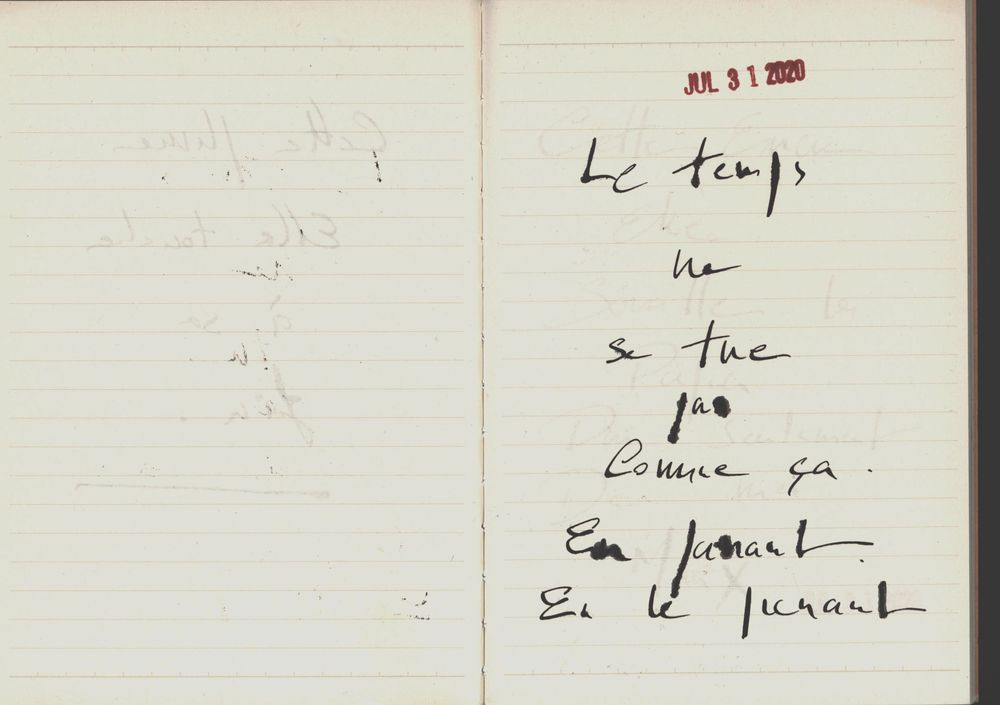 JUL 3 1 2020
Le temps
ne
se tue
pas
Comme ça.
En passant.
En le prenant